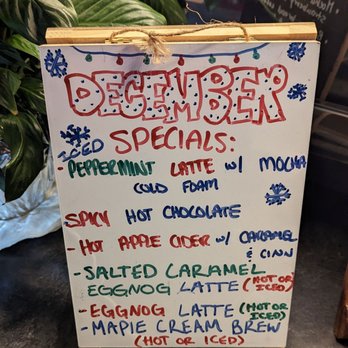 DECEMBER
SPECIALS:
ICED
- PEPPERMINT LATTE w/ MOCHA
COLD FOAM
SPICY HOT CHOCOLATE
- HOT APPLE CIDER w/ CARAMEL
& CINN
- SALTED CARAMEL
EGGNOG LATTE (HOT OR
ICED)
- EGGNOG LATTE (HOT OR
ICED)
- MAPLE CREAM BREW
(HOT OR ICED)